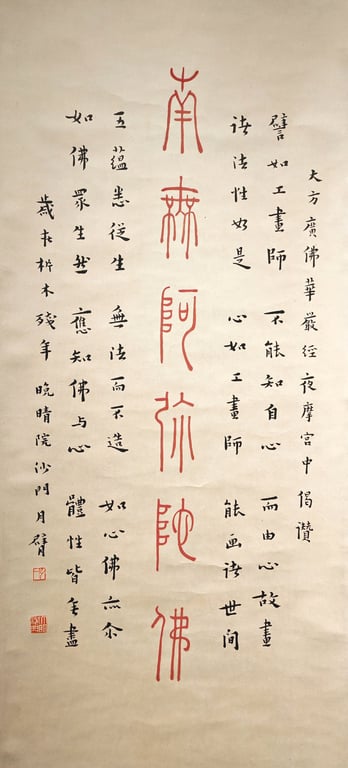 大方廣佛華嚴經夜摩宮中偈讚
譬如工畫師 不能知自心 而由心故畫
諸法性如是 心如工畫師 能画諸世间
南無阿弥陀佛
五蘊悉從生 無法而不造 如心佛亦尒
如佛眾生然 應知佛与心 體性皆无盡
歲在析木殘年 晚晴院沙門月臂